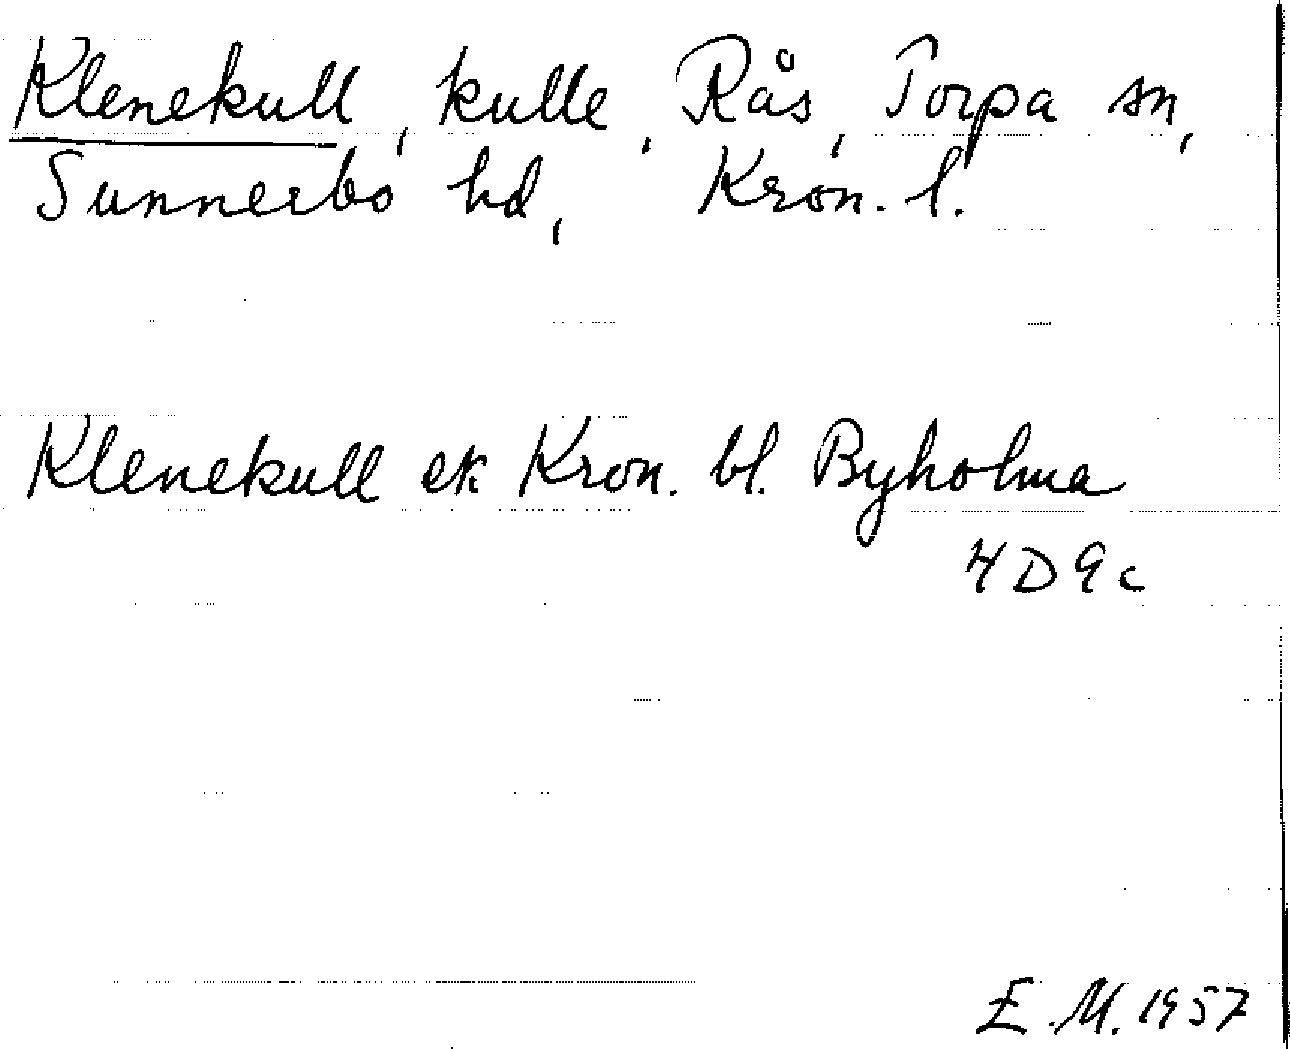 Klenekull, kulle, Rås, Torpa sn,
Sunnerbo hd, Kron. l.
Klenekull ek Kron. bl. Byholma
4D9c
E.M. 1957